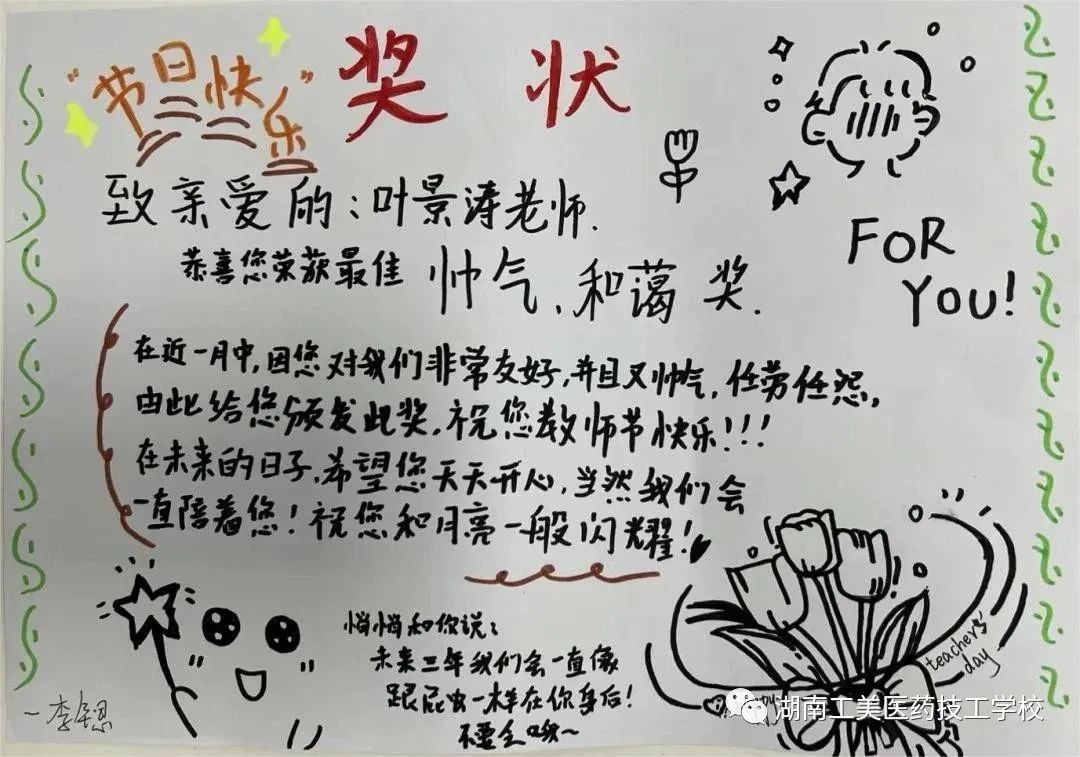 "节日快乐"
奖状
致亲爱的:叶景涛老师.
恭喜您荣获最佳 帅气、和蔼 奖.
FOR
YOU!
在近一月中,因您对我们非常友好,并且又帅气,任劳任怨,
由此给您颁发此奖,祝您教师节快乐!!!
在未来的日子,希望您天天开心,当然我们会
一直陪着您!祝您和月亮一般闪耀!
悄悄和你说:
未来三年我们会一直像
跟屁虫一样在你身后!
不要
teachers'
day
一李
湖南工美医药技工学校